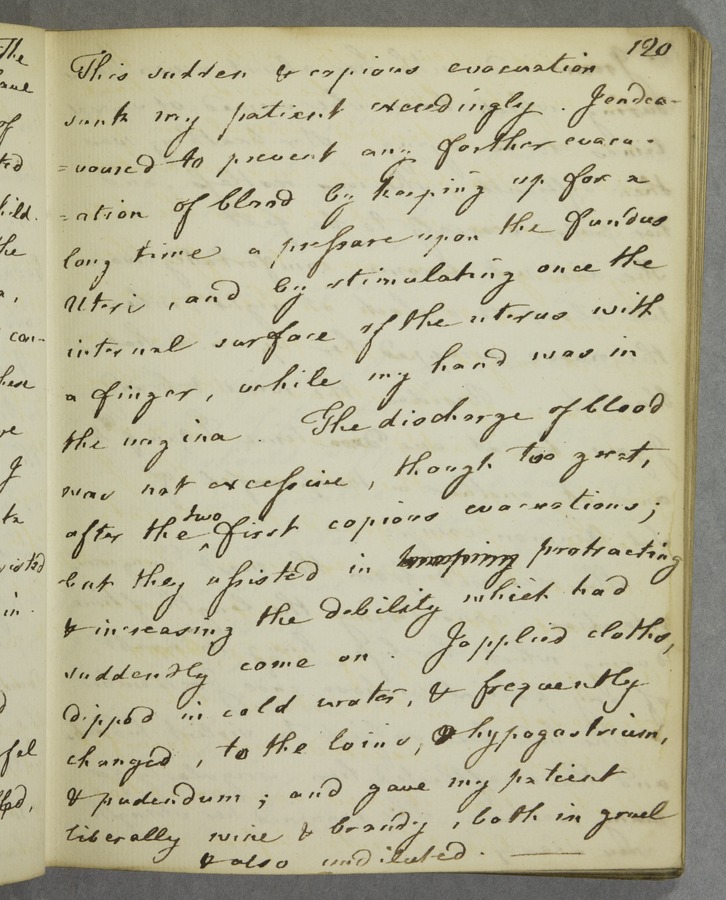 120
This sudden & copious evacuation
sunk my patient exceedingly. I endea-
=voured to prevent any farther evacu-
=ation of blood by keeping up for a
long time a pressure upon the fundus
Uteri, and by stimulating once the
internal surface of the uterus with
a finger, while my hand was in
the vagina. The discharge of blood
was not excessive, though too great,
after the two first copious evacuations;
but they assisted in protracting
& increasing the debility which had
suddenly come on. I applied cloths,
dipped in cold water, & frequently
changed, to the loins, hypogastrium,
& pudendum; and gave my patient
liberally wine & brandy, both in gruel
& also undiluted.